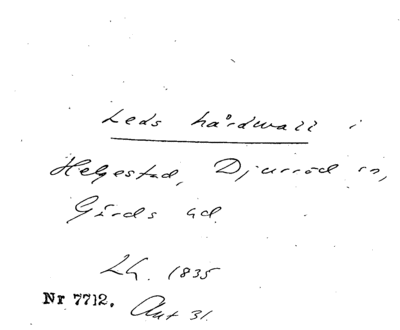 Leds hårdwall i
Helgestad, Djurröd sn,
Gärds hd.
Lh. 1835
Nr 7712. Akt 31.